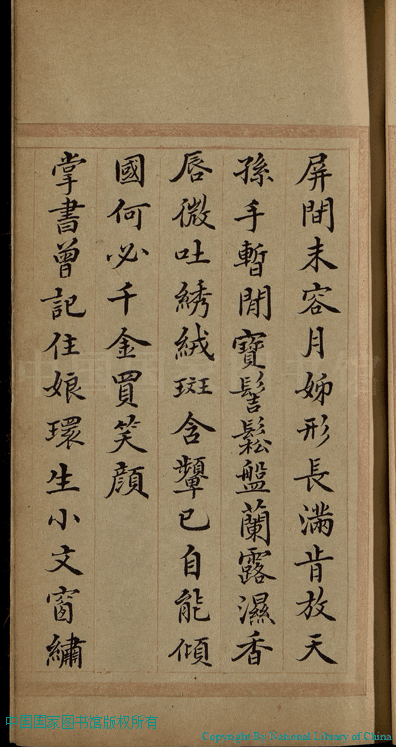 屏間未容月姊形長滿肯放天
孫手暫閒寶髻鬆盤蘭露濕香
唇微吐綉絨斑含顰已自能傾
國何必千金買笑顔
掌書曾記住娘環生小文窗繡
中国国家图书馆版权所有
Copyright By National Library of China